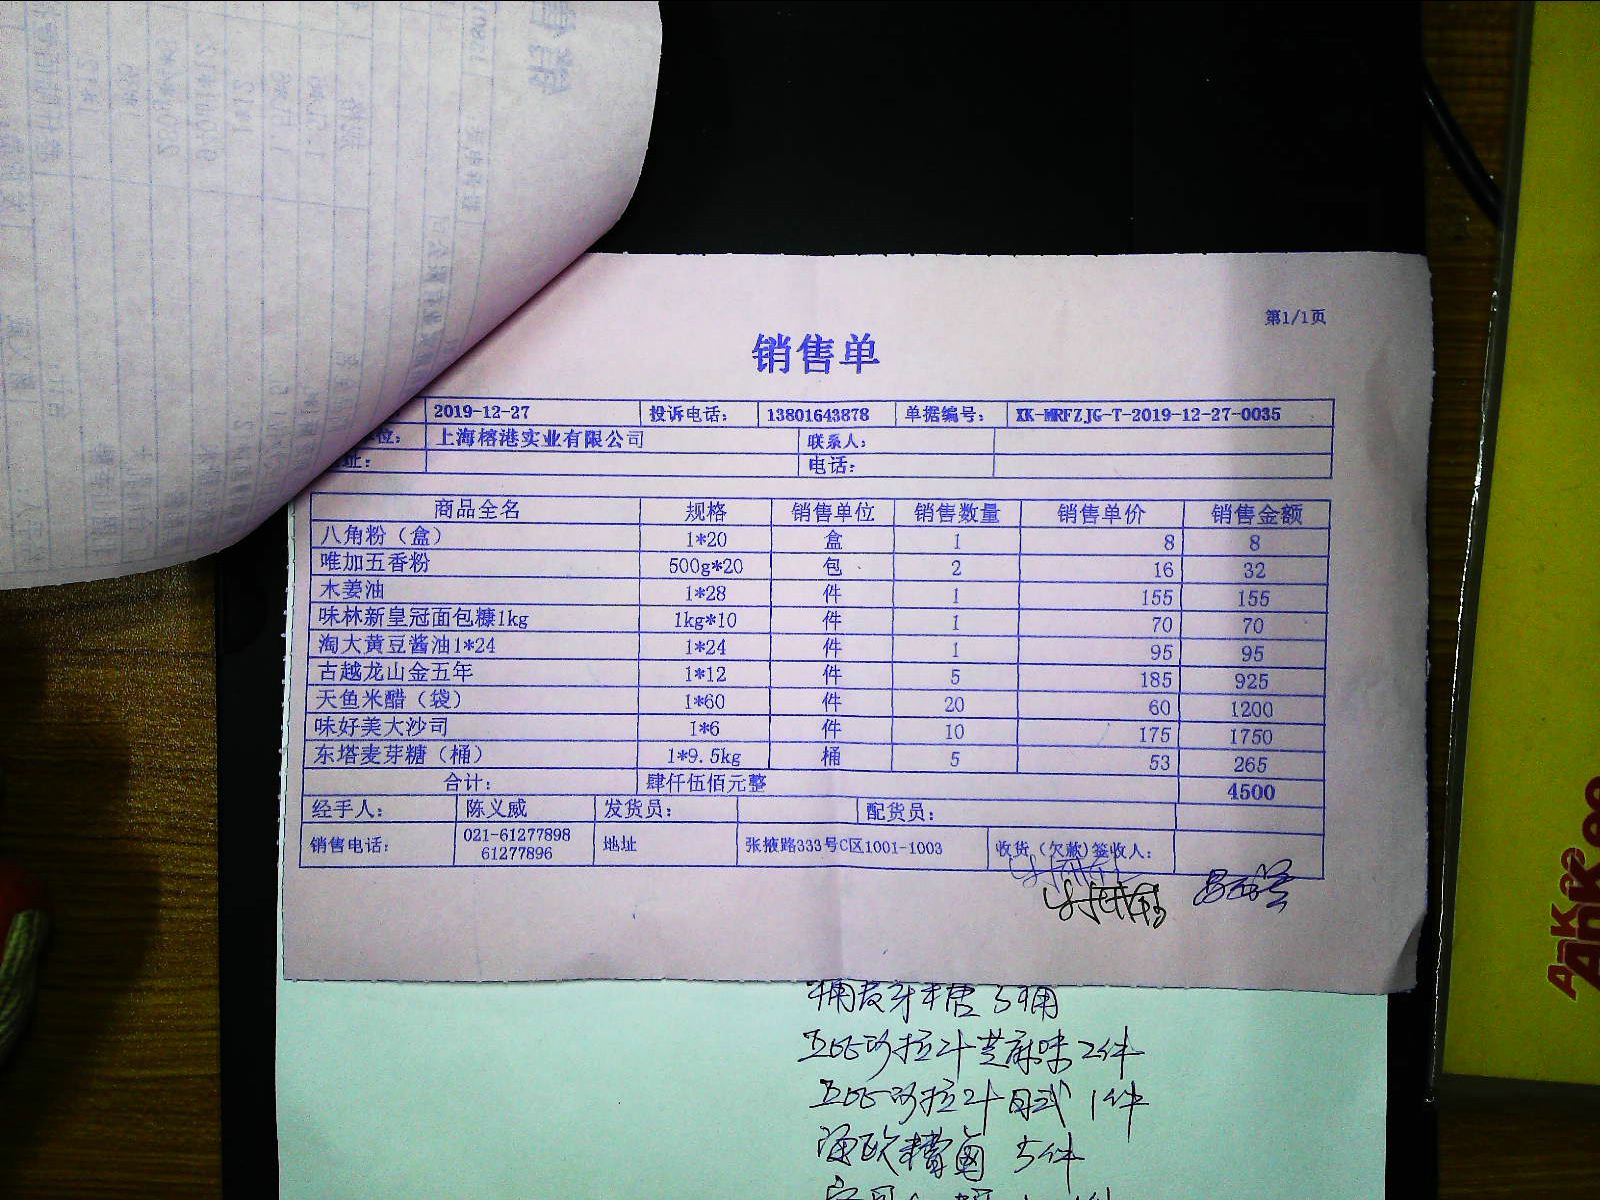 第1/1页
销售单
2019-12-27 投诉电话: 13801643878 单据编号: XK-MRFZJG-T-2019-12-27-0035
位: 上海榕港实业有限公司 联系人:
址: 电话:
商品全名 规格 销售单位 销售数量 销售单价 销售金额
八角粉（盒） 1*20 盒 1 8 8
唯加五香粉 500g*20 包 2 16 32
木姜油 1*28 件 1 155 155
味林新皇冠面包糠1kg 1kg*10 件 1 70 70
淘大黄豆酱油1*24 1*24 件 1 95 95
古越龙山金五年 1*12 件 5 185 925
天鱼米醋（袋） 1*60 件 20 60 1200
味好美大沙司 1*6 件 10 175 1750
东塔麦芽糖（桶） 1*9.5kg 桶 5 53 265
合计: 肆仟伍佰元整 4500
经手人: 陈义威 发货员: 配货员:
销售电话: 021-61277898 61277896 地址 张掖路333号C区1001-1003 收货(欠款)签收人:
糖 5桶
沙拉汁芝麻味2件
沙拉汁日式 1件
5件